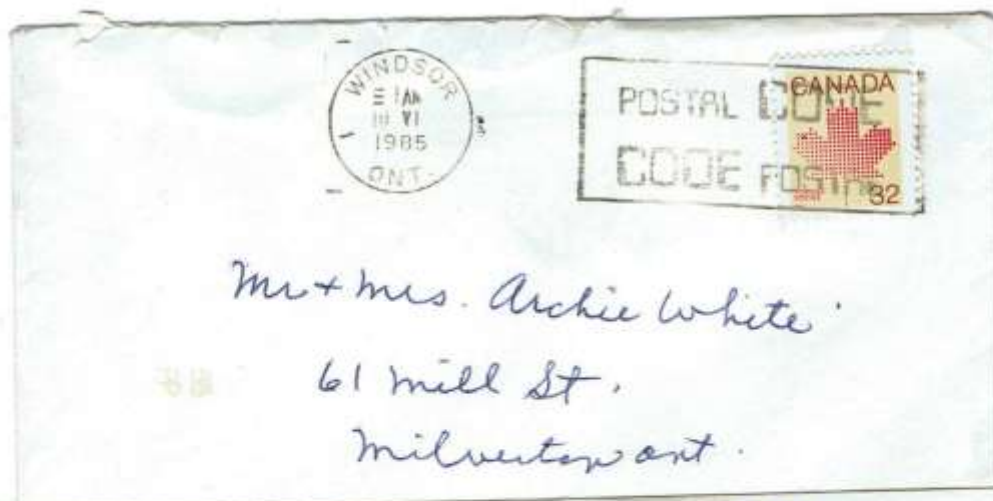 WINDSOR
1985
ONT.
POSTAL CODE
CODE POSTAL
CANADA
32
Mr + Mrs. Archie White
61 Mill St.
Milverton Ont.